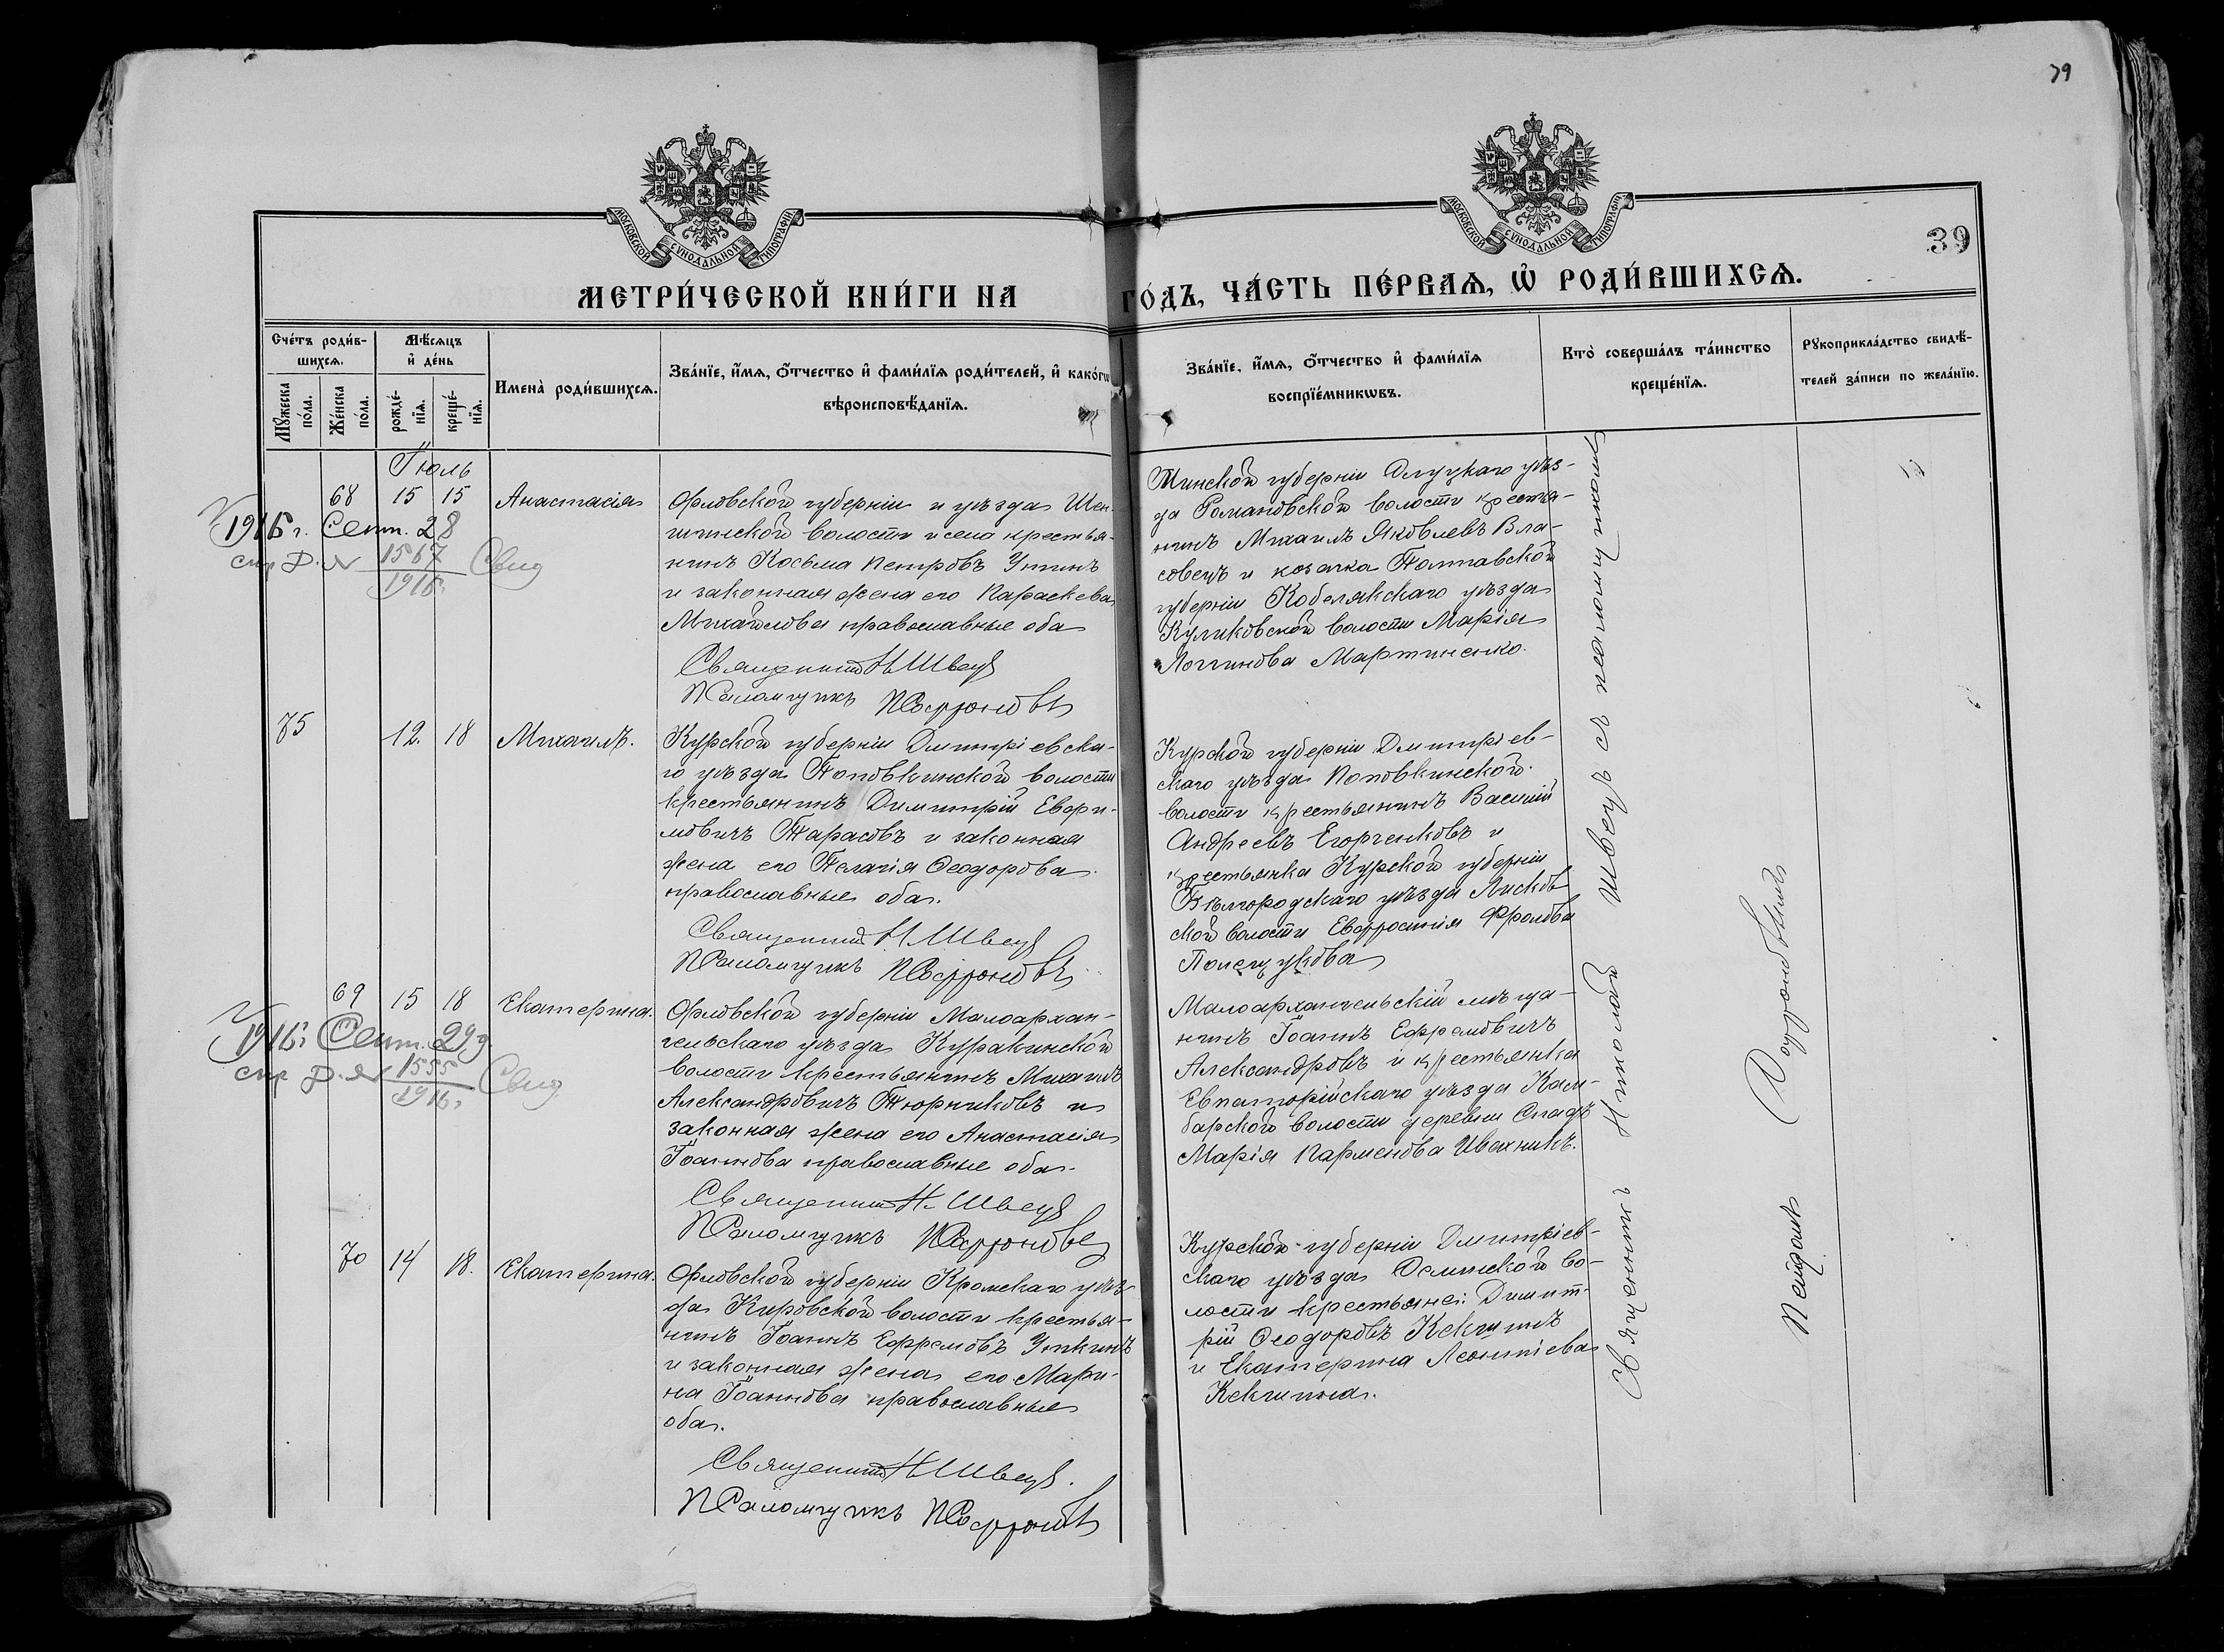 39
МОСКОВСКОЙ СѴНОДАЛЬНОЙ ТИПОГРАФІИ
МОСКОВСКОЙ СѴНОДАЛЬНОЙ ТИПОГРАФІИ
39
МЕТРИ́ЧЕСКОЙ КНИ́ГИ НА
ГО́ДЪ, ЧА́СТЬ ПЕ́РВАѦ, Ѡ҆ РОДИ́ВШИХСѦ.
Сче́тъ роди́в-
шихсѧ.
Мꙋжеска по́ла.
Же́нска по́ла.
Мѣ́сѧцъ
и҆ де́нь
рожде́-
нїѧ.
креще́-
нїѧ.
Имена̀ роди́вшихсѧ.
Зва́нїе, и҆́мѧ, ѻ҆́тчество и҆ фами́лїѧ роди́телей, и҆ како́гѡ
вѣроисповѣ́данїѧ.
Зва́нїе, и҆́мѧ, ѻ҆́тчество и҆ фами́лїѧ
воспрїе́мникѡвъ.
Кто̀ соверша́лъ та́инство
креще́нїѧ.
Рꙋкоприкла́дство свидѣ́-
телей за́писи по жела́нїю.
Іюль
68 15 15 Анастасія
1916 г. Сент. 28
спр Д. № 1567
1916 г.
Свид
Орловской губерніи и уѣзда Шен-
шинской волости и села крестья-
нинъ Косьма Петровъ Утинъ
и законная жена его Параскева
Михайлова православные оба
Священникъ Н Швецъ
Псаломщикъ П Софроновъ
Минской губерніи Слуцкаго уѣз-
да Романовской волости крестья-
нинъ Михаилъ Яковлевъ Вла-
совецъ и козачка Полтавской
губерніи Кобелякскаго уѣзда
Куликовской волости Марія
Логгинова Мартиненко.
75 12. 18 Михаилъ.
Курской губерніи Дмитріевска-
го уѣзда Поповкинской волости
крестьянинъ Димитрій Евфи-
мовичъ Тарасовъ и законная
жена его Пелагія Ѳеодорова
православные оба.
Священникъ Н. Швецъ
Псаломщикъ П Софроновъ
Курской губерніи Дмитріев-
скаго уѣзда Поповкинской
волости крестьянинъ Василій
Андреевъ Егорченковъ и
крестьянка Курской губерніи
Бѣлгородскаго уѣзда
ской волости Евфросинія Фролова
69 15 18 Екатерина.
1916 г. Сент. 29 д.
спр Д. № 1555
1916 г.
Свид
Орловской губерніи Малоархан-
гельскаго уѣзда Куракинской
волости крестьянинъ Михаилъ
Александровичъ Тюрниковъ и
законная жена его Анастасія
Іоаннова православные оба.
Священникъ Н. Швецъ
Псаломщикъ П Софроновъ
Малоархангельскій мѣща-
нинъ Іоаннъ Ефремовичъ
Александровъ и крестьянка
Евпаторійскаго уѣзда Кам-
барской волости деревни
Марія Парменова Ивахникъ.
70 14 18. Екатерина.
Орловской губерніи Кромскаго уѣз-
да Кировской волости крестья-
нинъ Іоаннъ Ефремовъ Уткинъ
и законная жена его Мари-
на Іоаннова православные
оба.
Священникъ Н Швецъ.
Псаломщикъ П Софроновъ
Курской губерніи Дмитріев-
скаго уѣзда во-
лости крестьяне: Димит-
рій Ѳеодоровъ Кекшинъ
и Екатерина Леонтіева
Кекшина.
Священникъ Николай Швецъ съ псаломщикомъ
Софроновымъ